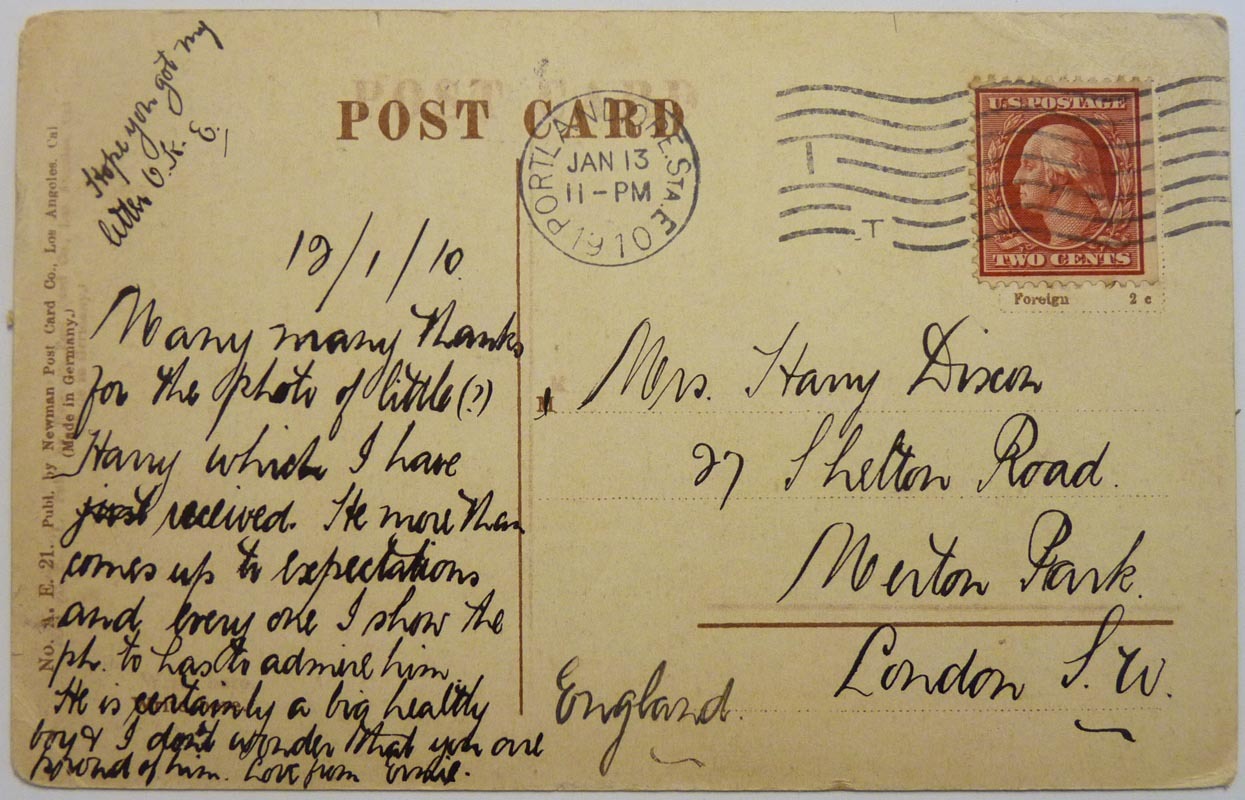 Hope you got my
letter O.K. E.
POST CARD
PORTLAND, ORE. STA. E.
JAN 13
11-PM
1910
U.S. POSTAGE
TWO CENTS
Foreign 2 c
12/1/10.
Many many thanks
for the photo of little (?)
Harry which I have
just received. He more than
comes up to expectations
and every one I show the
ph. to has to admire him.
He is certainly a big healthy
boy & I don't wonder that you are
proud of him. Love from Ernie.
Mrs. Harry Dixon
27 Shelton Road.
Merton Park.
London S.W.
England.
No. A. E. 21. Publ. by Newman Post Card Co., Los Angeles, Cal
(Made in Germany.)